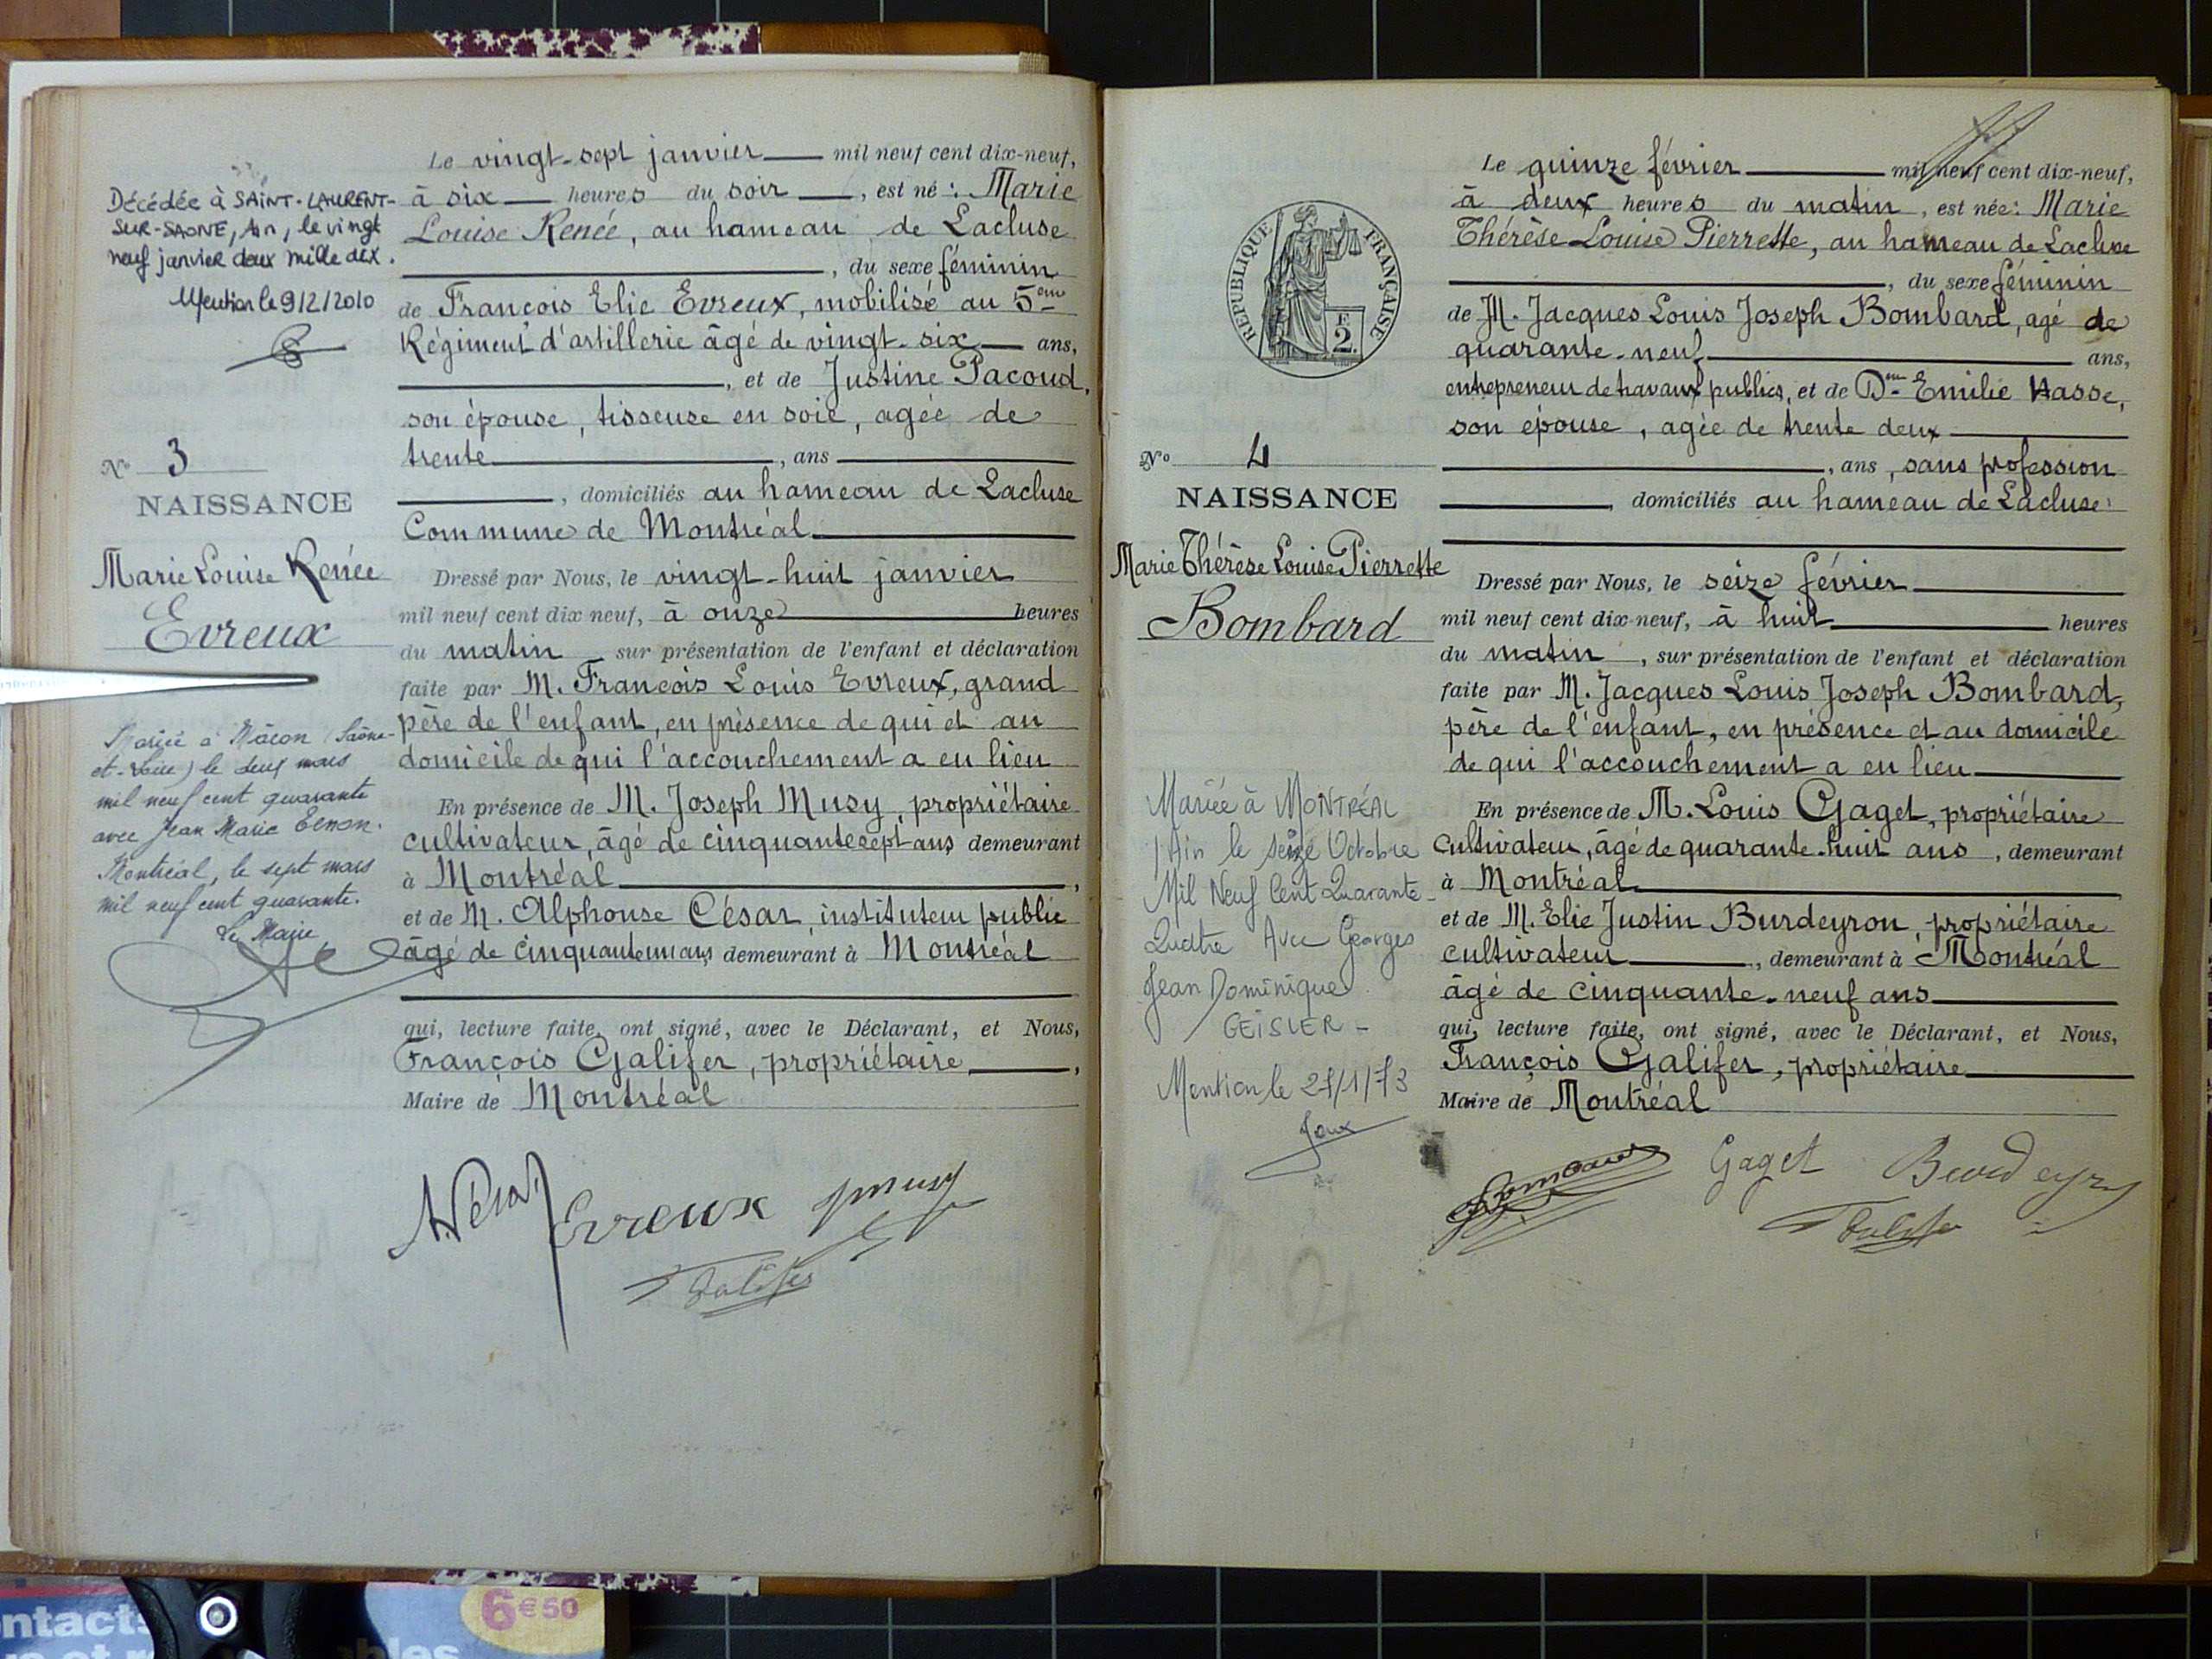 Décédée à SAINT-LAURENT-
SUR-SAONE, Ain, le vingt
neuf janvier deux mille dix.
Mention le 9/2/2010
N° 3
NAISSANCE
Marie Louise Renée
Evreux
Mariée à Mâcon (Saône-
et-Loire) le deux mars
mil neuf cent quarante
avec Jean Marie
Montréal, le sept mars
mil neuf cent quarante.
Le Maire
Le vingt-sept janvier mil neuf cent dix-neuf,
à six heures du soir, est né : Marie
Louise Renée, au hameau de Lacluse
, du sexe féminin
de François Elie Evreux, mobilisé au 5eme
Régiment d'artillerie âgé de vingt-six ans,
, et de Justine Pacoud,
son épouse, tisseuse en soie, agée de
trente, ans
, domiciliés au hameau de Lacluse
Commune de Montréal
Dressé par Nous, le vingt-huit janvier
mil neuf cent dix neuf, à onze heures
du matin sur présentation de l'enfant et déclaration
faite par M. François Louis Evreux, grand
père de l'enfant, en présence de qui et au
domicile de qui l'accouchement a eu lieu
En présence de M. Joseph Musy, propriétaire
cultivateur, âgé de cinquante sept ans demeurant
à Montréal,
et de M. Alphonse César, instituteur public
âgé de cinquante un ans demeurant à Montréal
qui, lecture faite, ont signé, avec le Déclarant, et Nous,
François Galifer, propriétaire,
Maire de Montréal
Evreux
Galifer
RÉPUBLIQUE FRANÇAISE
F
2
N° 4
NAISSANCE
Marie Thérèse Louise Pierrette
Bombard
Mariée à MONTRÉAL
Ain le seize Octobre
Mil Neuf Cent Quarante-
Quatre Avec Georges
Jean Dominique
GEISLER -
Mention le
Le quinze février mil neuf cent dix-neuf,
à deux heures du matin, est née : Marie
Thérèse Louise Pierrette, au hameau de Lacluse
, du sexe féminin
de M. Jacques Louis Joseph Bombard, agé de
quarante-neuf ans,
entrepreneur de travaux publics, et de Dme Emilie Hasse,
son épouse, agée de trente deux
, ans, sans profession
, domiciliés au hameau de Lacluse
Dressé par Nous, le seize février
mil neuf cent dix-neuf, à huit heures
du matin, sur présentation de l'enfant et déclaration
faite par M. Jacques Louis Joseph Bombard,
père de l'enfant, en présence et au domicile
de qui l'accouchement a eu lieu
En présence de M. Louis Gaget, propriétaire
Cultivateur, âgé de quarante-huit ans, demeurant
à Montréal
et de M. Elie Justin Burdeyron, propriétaire
cultivateur, demeurant à Montréal
âgé de cinquante-neuf ans
qui, lecture faite, ont signé, avec le Déclarant, et Nous,
François Galifer, propriétaire
Maire de Montréal
Gaget
Galifer
6€50